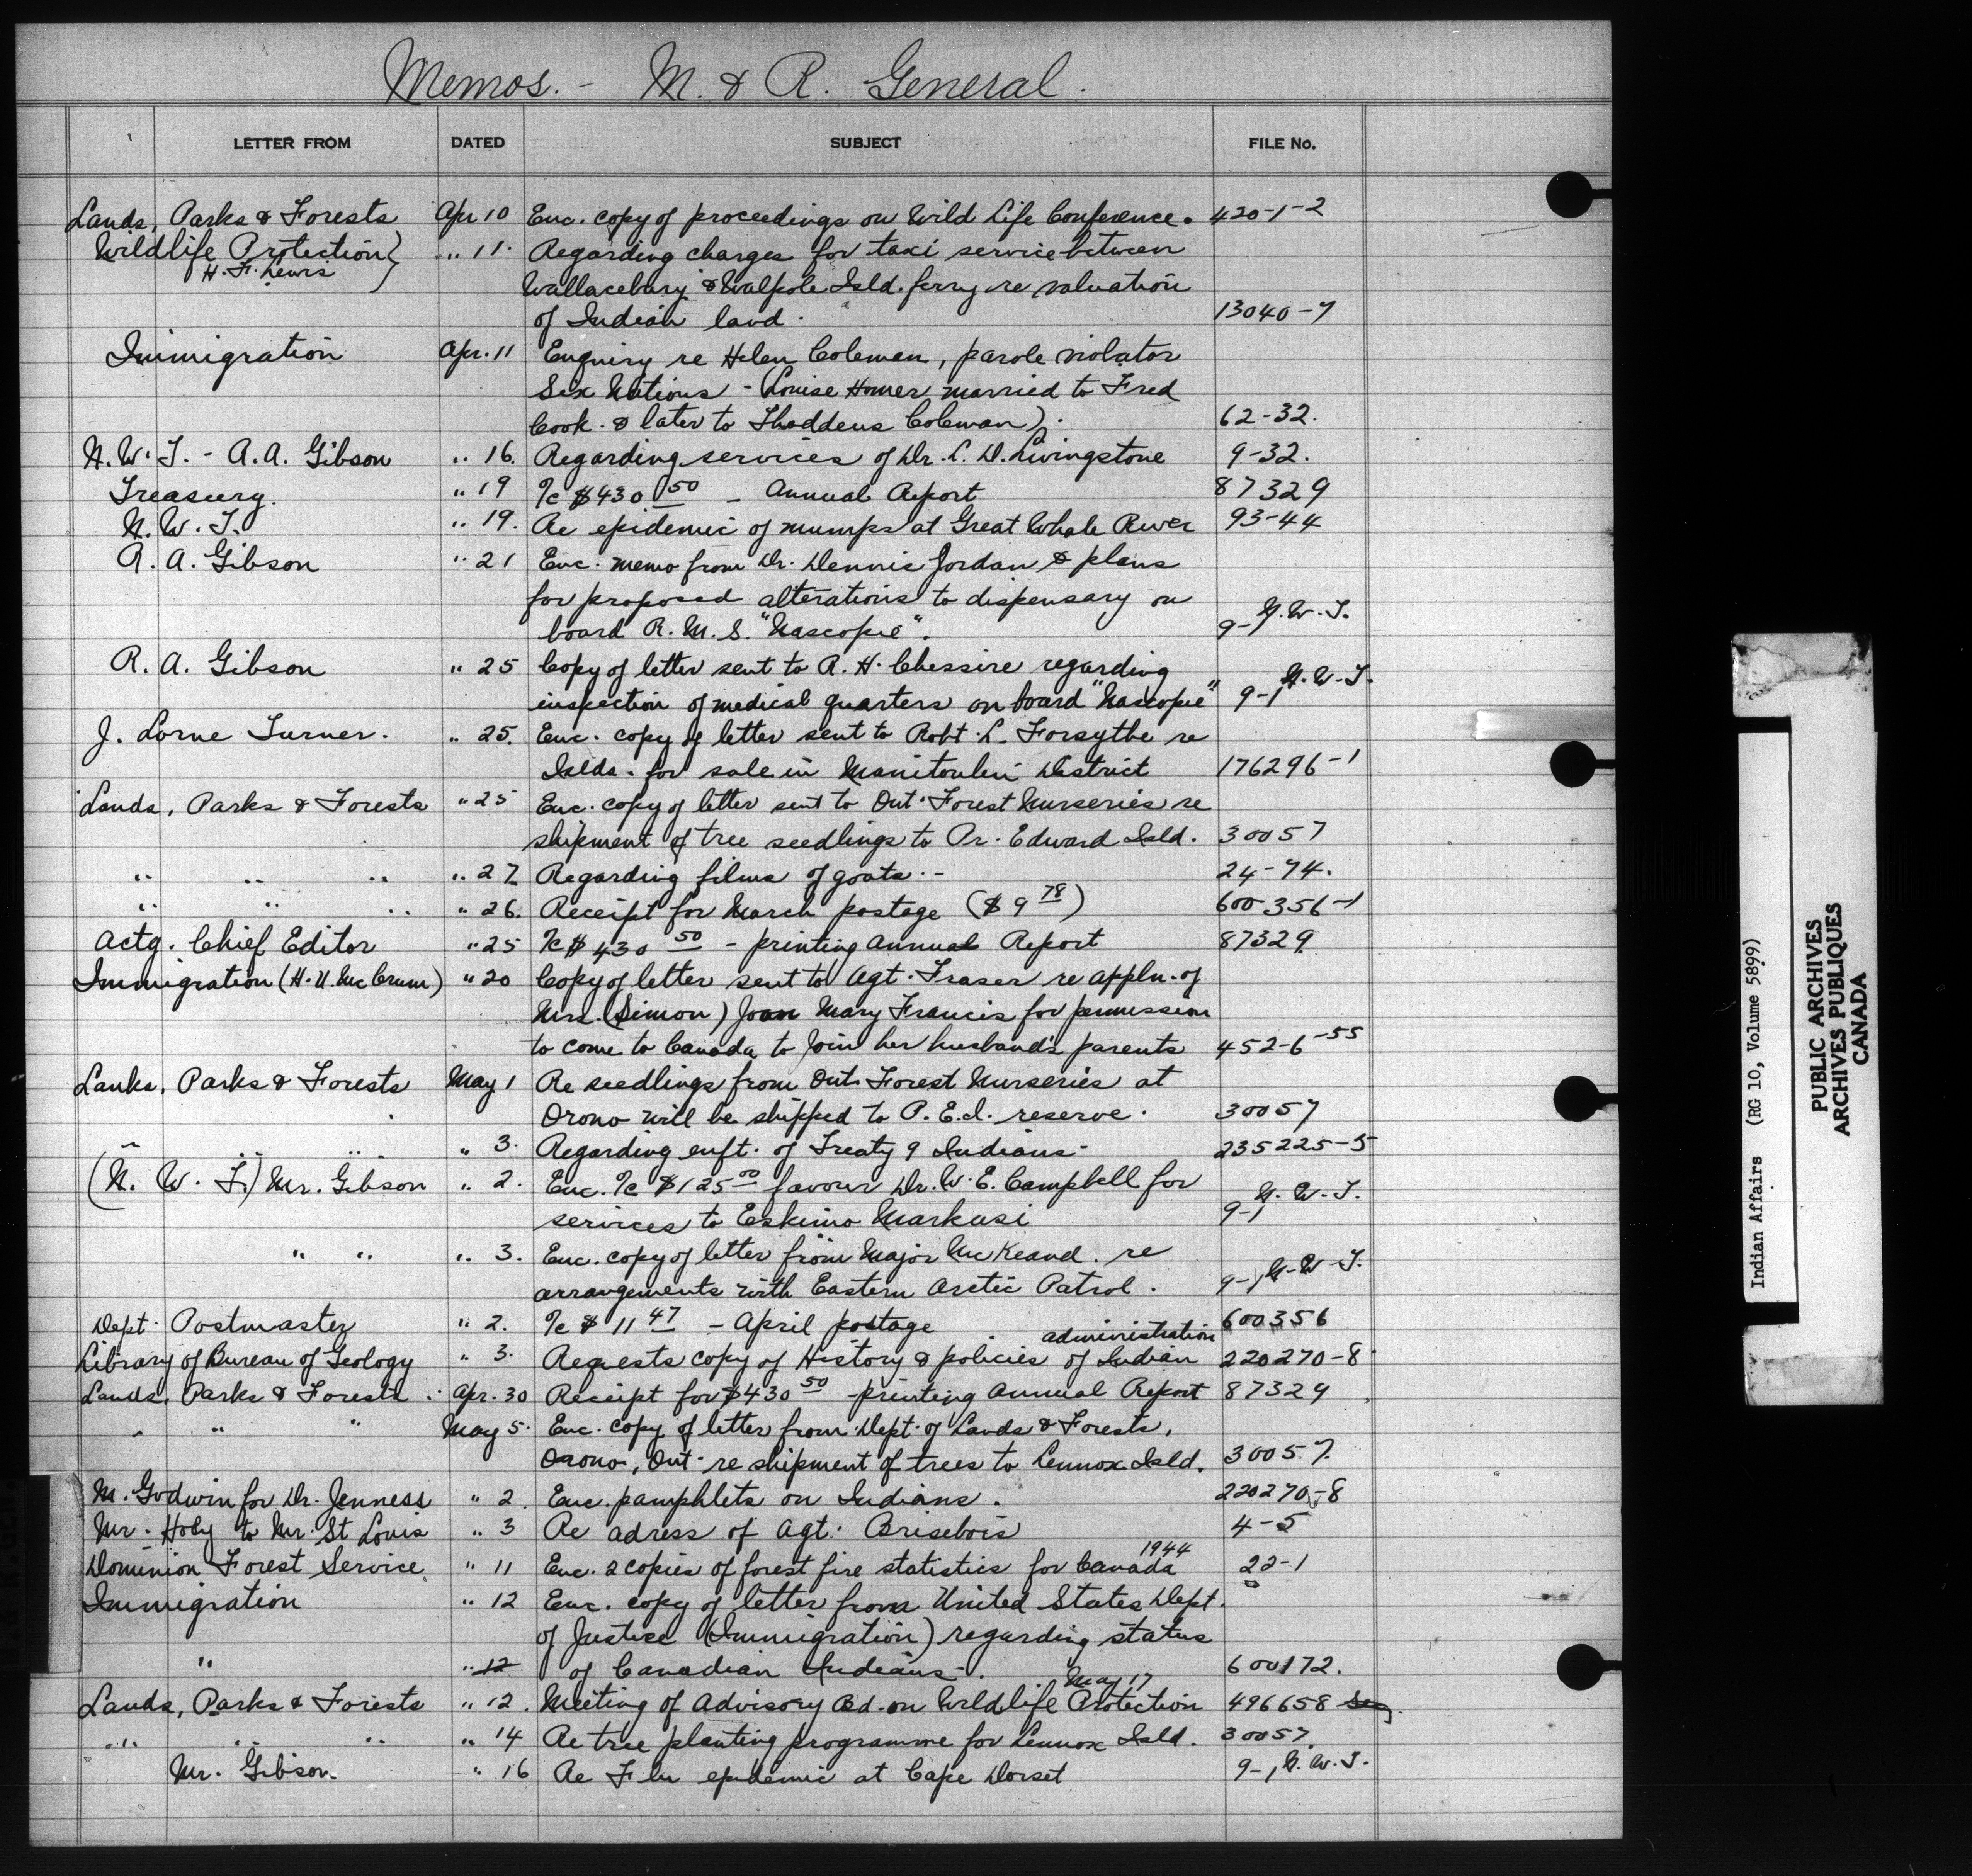 Memos. - M. & R. General.
LETTER FROM DATED SUBJECT FILE No.
Lands, Parks & Forests Apr 10 Enc. copy of proceedings on Wild Life Conference. 420-1-2
Wildlife Protection} " 11. Regarding charges for taxi service between
H. F. Lewis
Wallaceburg & Walpole Isld. ferry re valuation
of Indian land. 13040-7
Immigration Apr. 11 Enquiry re Helen Coleman, parole violator
Six Nations - (Louise Homer married to Fred
Cook. & later to Thaddeus Coleman). 62-32.
N. W. T. - R. A. Gibson " 16. Regarding services of Dr. L. D. Livingstone 9-32.
Treasury. " 19 %c $430 50 - Annual Report 87329
N. W. T. " 19. Re epidemic of mumps at Great Whale River 93-44
R. A. Gibson " 21 Enc. memo from Dr. Dennis Jordan & plans
for proposed alterations to dispensary on
board R. M. S. "Nascopie". 9-1 N.W.T.
R. A. Gibson " 25 Copy of letter sent to R. H. Chessire regarding
inspection of medical quarters on board "Nascopie" 9-1 N.W.T.
J. Lorne Turner. " 25. Enc. copy of letter sent to Robt. L. Forsythe re
Islds. for sale in Manitoulin District 176296-1
Lands, Parks & Forests " 25 Enc. copy of letter sent to Ont. Forest Nurseries re
shipment of tree seedlings to Pr. Edward Isld. 30057
" " " " 27 Regarding films of goats. - 24-74.
" " " " 26. Receipt for March postage ($9 78) 600356-1
Actg. Chief Editor " 25 %c $430 50 - printing Annual Report 87329
Immigration (H. U. McCrum) " 20 Copy of letter sent to Agt. Fraser re appln. of
Mrs. (Simon) Joan Mary Francis for permission
to come to Canada to join her husband's parents 452-6-55
Lanks, Parks & Forests May 1 Re seedlings from Ont. Forest Nurseries at
Orono will be shipped to P.E.I. reserve. 30057
" " " " 3. Regarding enft. of Treaty 9 Indians - 235225-5
(N. W. T.) Mr. Gibson " 2. Enc. %c $125 00 favour Dr. W. E. Campbell for
services to Eskimo Markusi 9-1 N.W.T.
" " " 3. Enc. copy of letter from Major McKeand. re
arrangements with Eastern Arctic Patrol. 9-1 N-W-T.
Dept. Postmaster " 2. %c $ 11 47 - April postage 600356
administration
Library of Bureau of Geology " 3. Requests copy of History & policies of Indian 220270-8
Lands, Parks & Forests. Apr. 30 Receipt for $430 50 - printing Annual Report 87329
" " " May 5. Enc. copy of letter from Dept. of Lands & Forests,
Orono, Ont. re shipment of trees to Lennox Isld. 30057.
M. Godwin for Dr. Jenness " 2. Enc. pamphlets on Indians. 220270-8
Mr. Hoey to Mr. St Louis " 3 Re adress of Agt. Brisebois 4-5
1944
Dominion Forest Service " 11 Enc. 2 copies of forest fire statistics for Canada 22-1
Immigration " 12 Enc. copy of letter from United States Dept.
of Justice (Immigration) regarding status
" " 12 of Canadian Indians -. 600172.
May 17
Lands, Parks & Forests " 12. Meeting of Advisory Bd. on Wildlife Protection 496658
" " " " 14 Re tree planting programme for Lennox Isld. 30057.
Mr. Gibson. " 16 Re Flu epidemic at Cape Dorset 9-1 N.W.T.
Indian Affairs (RG 10, Volume 5899)
PUBLIC ARCHIVES
ARCHIVES PUBLIQUES
CANADA